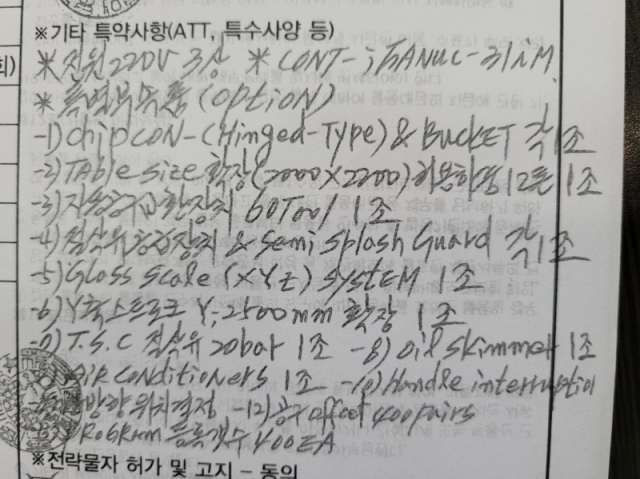 ※기타 특약사항(ATT, 특수사양 등)
※전원 220V 3상 ※ CONT-iFANUC-31iM.
※특별부속품(OPTION)
-1) CHIPCON-(Hinged-Type) & BUCKET 각 1조
-2) TABle Size 확장(2000X2200)허용하중12톤 1조
-3) 자동공구교환장치 60Tool 1조
-4) 절삭유공급장치 & Semi Splash Guard 각1조
-5) Gloss scale (XYZ) SYSTEM 1조
-6) Y축스트로크 Y:2500mm 확장 1조
T.S.C 절삭유 20bar 1조 -8) Oil Skimmer 1조
AIR CONDITIONERS 1조 -10) Handle interruptio
방향위치결정 -12) 공구 offcet 400pairs
PROGRAM 등록갯수 400EA
※전략물자 허가 및 고지 - 동의